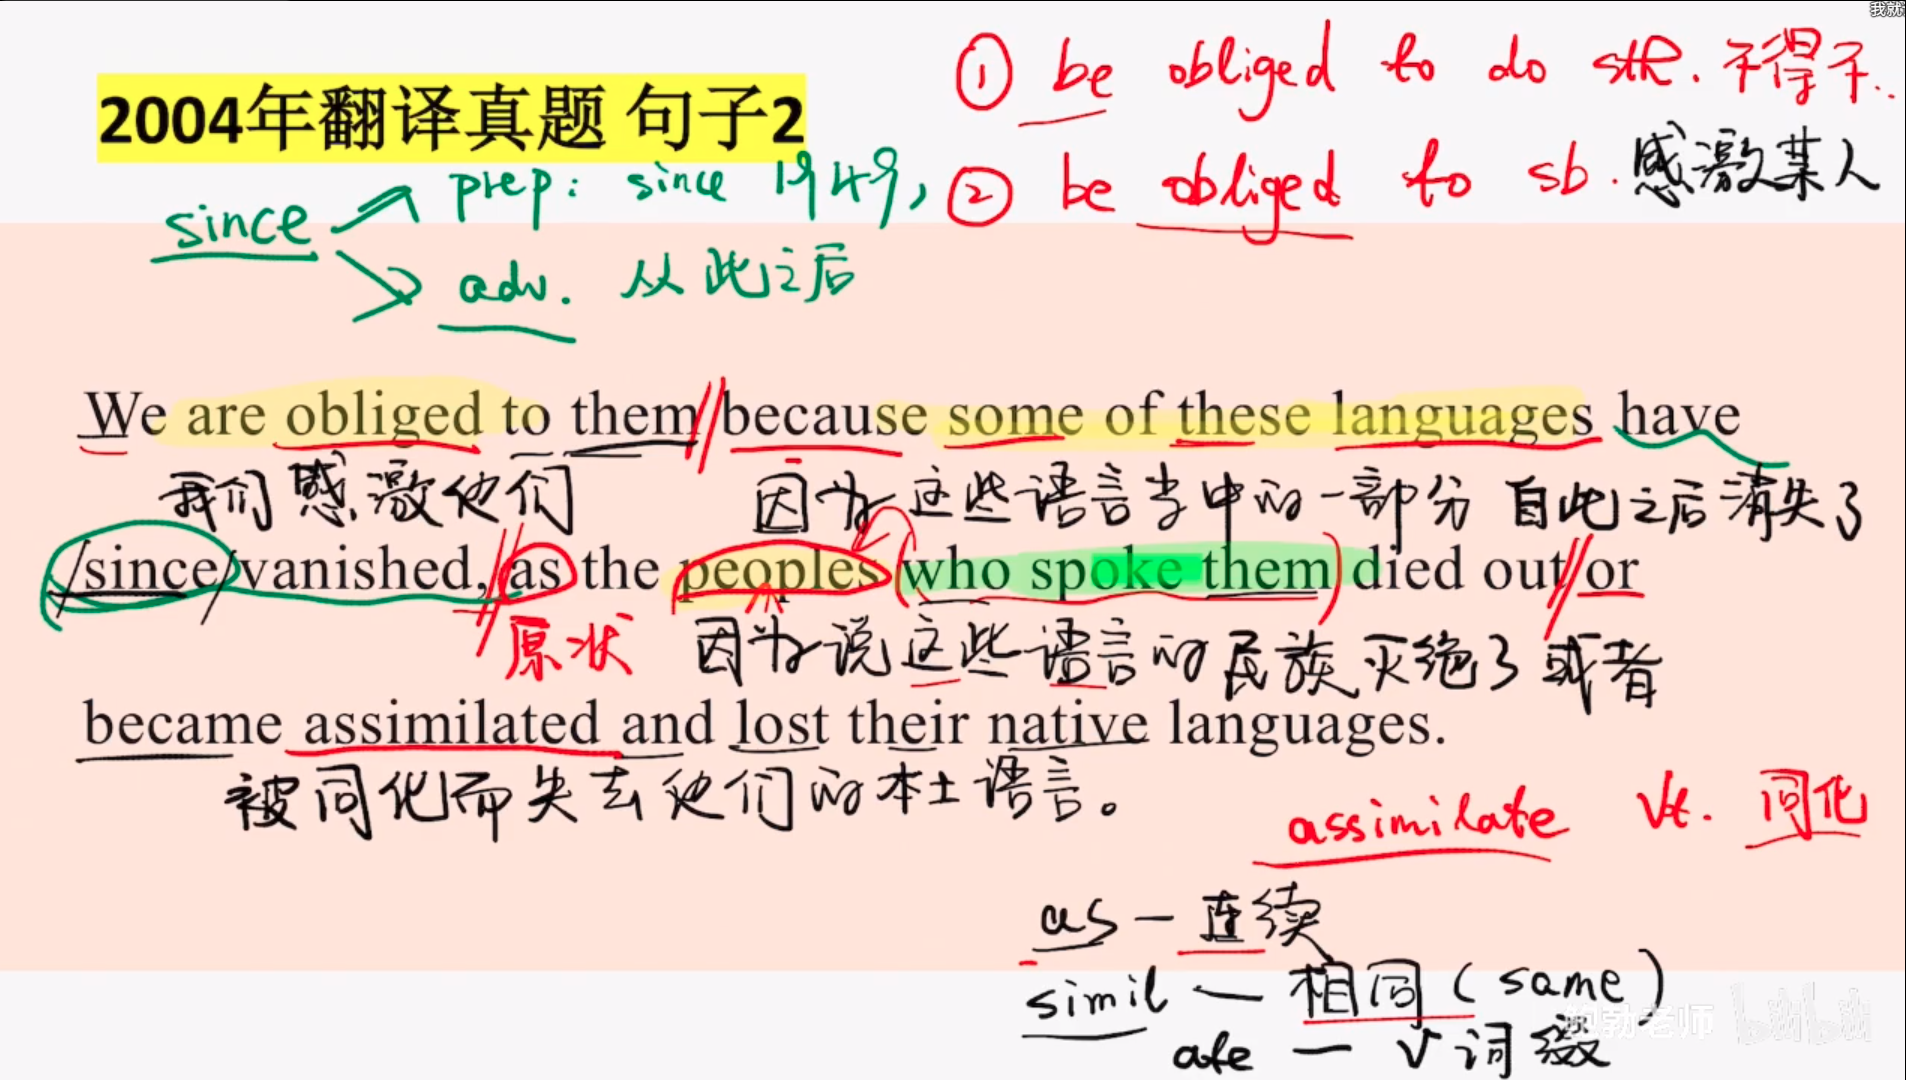 我就
① be obliged to do sth. 不得不..
2004年翻译真题 句子2
② be obliged to sb. 感激某人
since
prep: since 1949,
adv. 从此之后
We are obliged to them because some of these languages have
我们感激他们 因为这些语言当中的一部分 自此之后消失了
since vanished, as the peoples who spoke them died out or
原状 因为说这些语言的民族灭绝了 或者
became assimilated and lost their native languages.
被同化而失去他们的本土语言。
assimilate vt. 同化
as — 连续
simil — 相同 (same)
老师 bilibili
ate — v 词缀